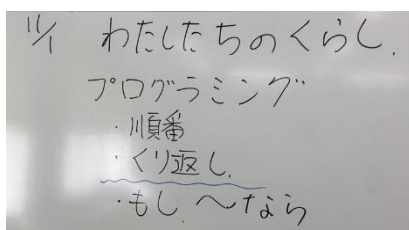 11/1 わたしたちのくらし.
プログラミング
・順番
・くり返し.
・もし.〜なら